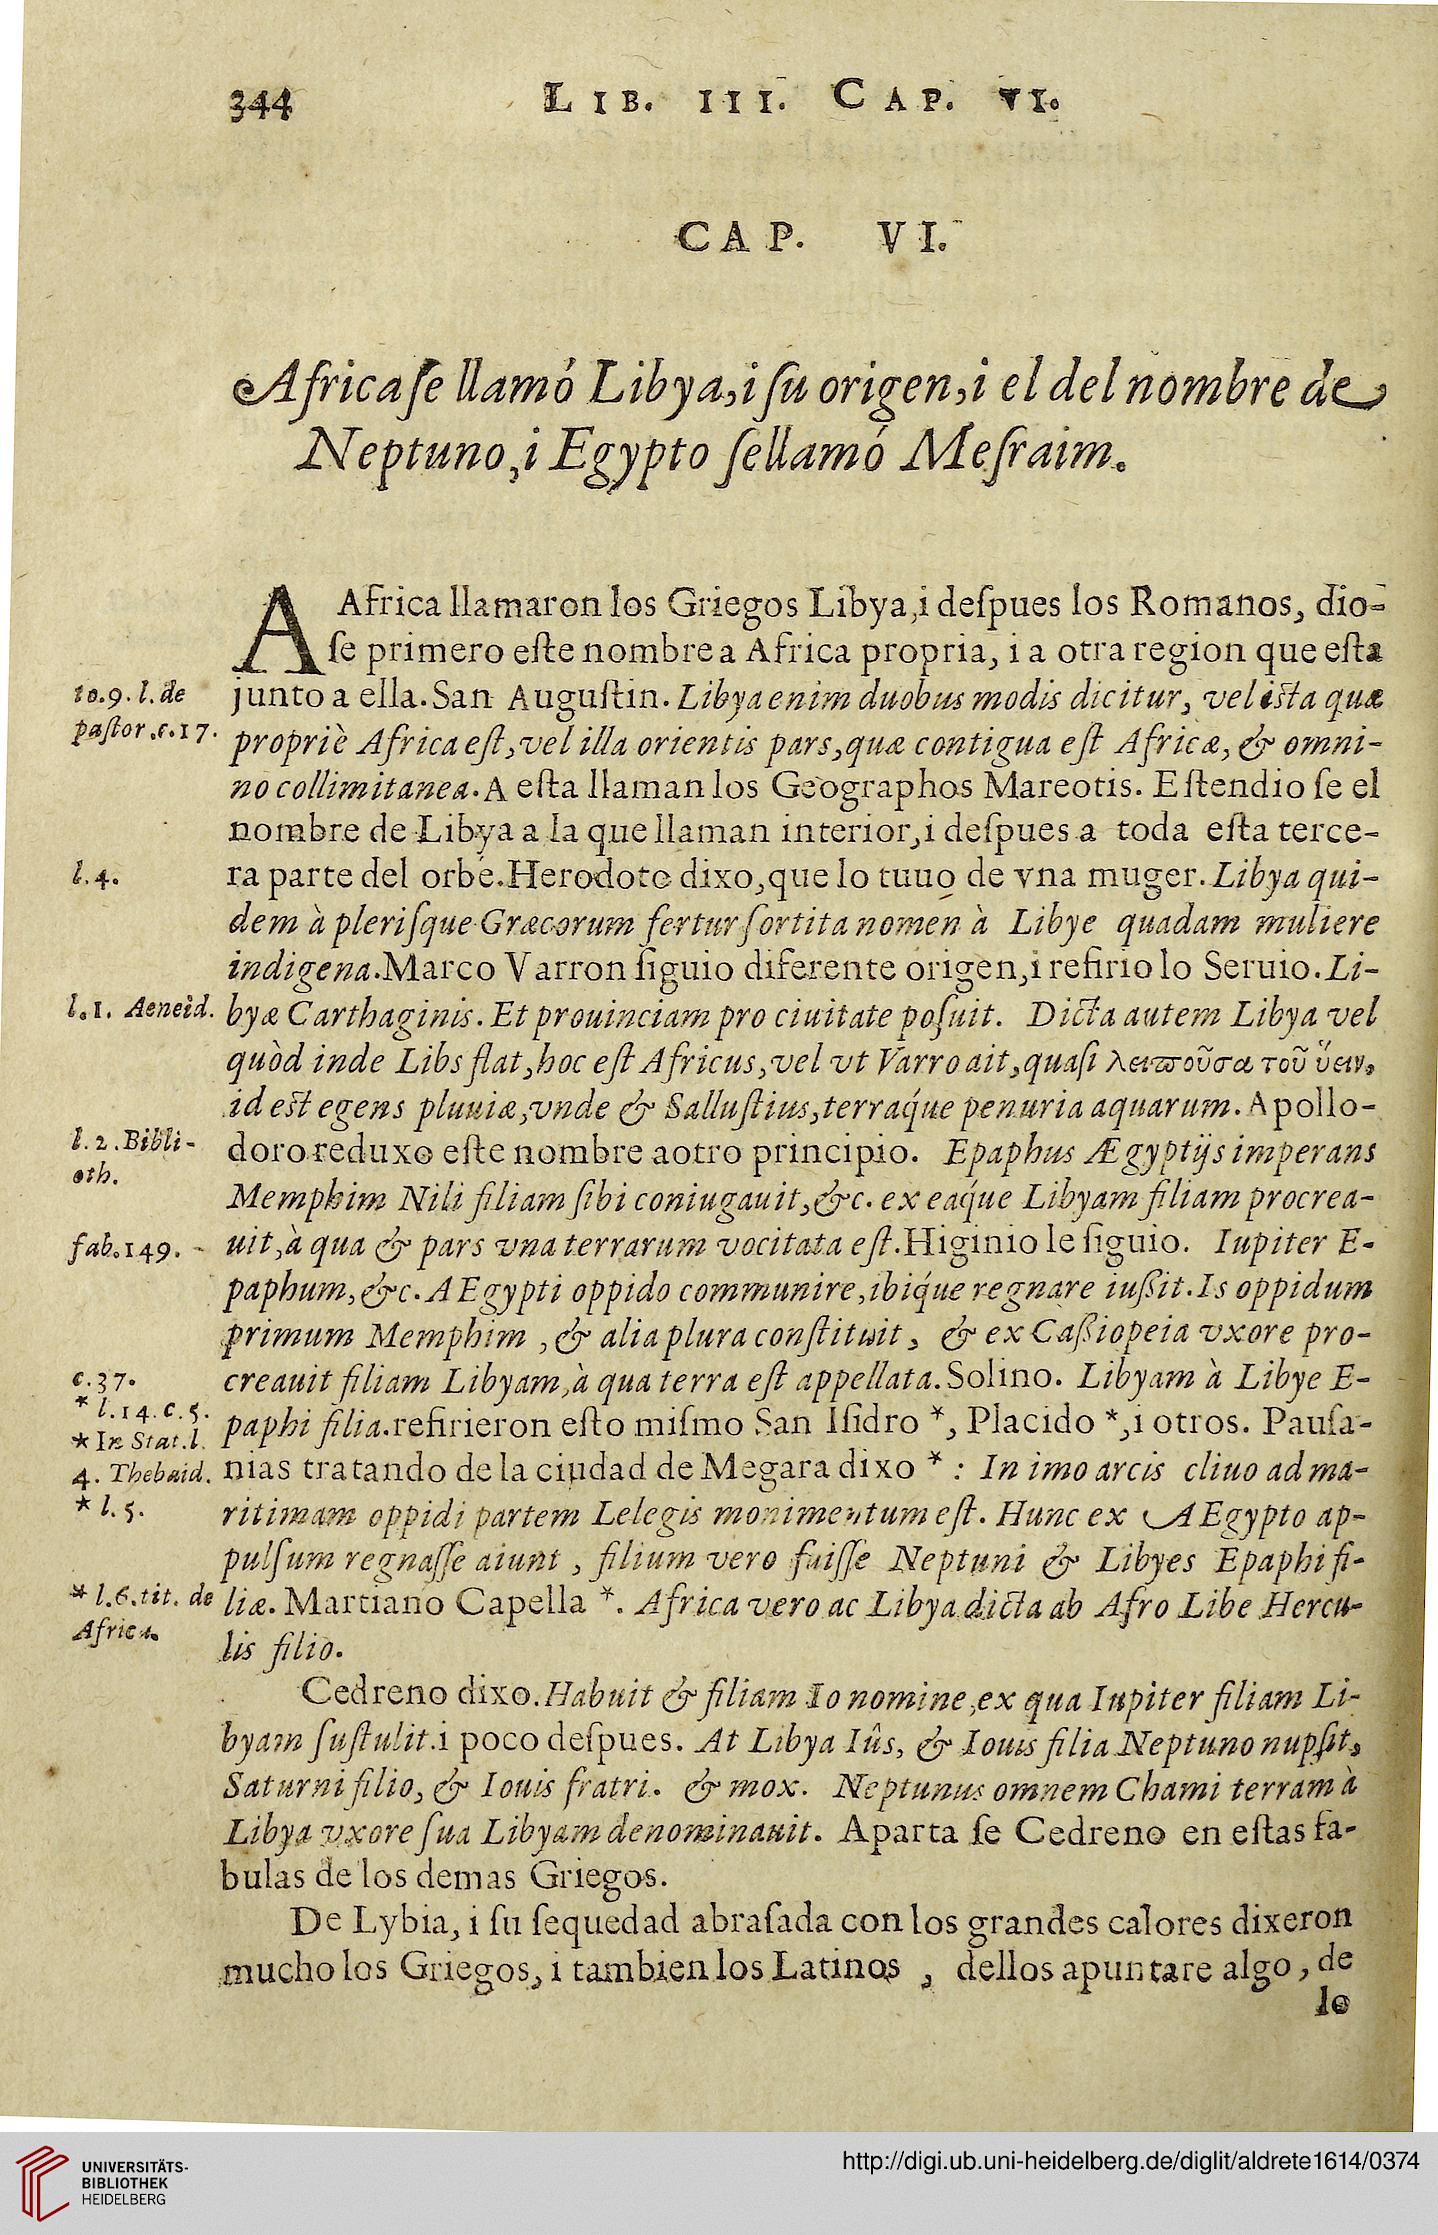 344
LIB. III. CAP. VI.
CAP. VI.
Africa ſe llamó Libya, i ſu origen, i el del nombre de
Neptuno, i Egypto ſe llamó Meſraim.
A Africa llamaron los Griegos Libya, i deſpues los Romanos, dio-
ſe primero eſte nombre a Africa propria, i a otra region que eſta
to.9. l. de
junto a ella. San Auguſtin. Libya enim duobus modis dicitur, vel iſta quæ
paſtor .c.17.
propriè Africa eſt, vel illa orientis pars, quæ contigua eſt Africæ, & omni-
no collimitanea. A eſta llaman los Geographos Mareotis. Eſtendio ſe el
nombre de Libya a la que llaman interior, i deſpues a toda eſta terce-
l.4.
ra parte del orbe. Herodoto dixo, que lo tuuo de vna muger. Libya qui-
dem à pleriſque Græcorum fertur ſortita nomen à Libye quadam muliere
indigena. Marco Varron ſiguio diferente origen, i refirio lo Seruio. Li-
l.1. Aeneid.
byæ Carthaginis. Et prouinciam pro ciuitate poſuit. Dicta autem Libya vel
quòd inde Libs flat, hoc eſt Africus, vel vt Varro ait, quaſi λειποῦσα τοῦ ὕειν,
id eſt egens pluuiæ, vnde & Salluſtius, terraq́ue penuria aquarum. Apollo-
l.2. Bibli-
oth.
doro reduxo eſte nombre a otro principio. Epaphus Ægyptijs imperans
Memphim Nili filiam ſibi coniugauit, &c. ex eaq́ue Libyam filiam procrea-
fab.149.
uit, à qua & pars vna terrarum vocitata eſt. Higinio le ſiguio. Iupiter E-
paphum, &c. AEgypti oppido communire, ibiq́ue regnare iußit. Is oppidum
primum Memphim , & alia plura conſtituit , & ex Caßiopeia vxore pro-
c.37.
creauit filiam Libyam, à qua terra eſt appellata. Solino. Libyam à Libye E-
* l.14.c.5.
* In Stat.l.
paphi filia. refirieron eſto miſmo San Iſidro *, Placido *, i otros. Pauſa-
4. Thebaid.
nias tratando de la ciudad de Megara dixo * : In imo arcis cliuo ad ma-
* l.5.
ritimam oppidi partem Lelegis monimentum eſt. Hunc ex AEgypto ap-
pulſum regnaſſe aiunt , filium vero fuiſſe Neptuni & Libyes Epaphi fi-
* l.6.tit. de
Africa.
liæ. Martiano Capella *. Africa vero ac Libya dicta ab Afro Libe Hercu-
lis filio.
Cedreno dixo. Habuit & filiam Io nomine, ex qua Iupiter filiam Li-
byam ſuſtulit. i poco deſpues. At Libya Iûs, & Iouis filia Neptuno nupſit,
Saturni filio, & Iouis fratri. & mox. Neptunus omnem Chami terram à
Libya vxore ſua Libyam denominauit. Aparta ſe Cedreno en eſtas fa-
bulas de los demas Griegos.
De Lybia, i ſu ſequedad abraſada con los grandes calores dixeron
mucho los Griegos, i tambien los Latinos , dellos apuntare algo, de
lo
UNIVERSITÄTS-
BIBLIOTHEK
HEIDELBERG
http://digi.ub.uni-heidelberg.de/diglit/aldrete1614/0374